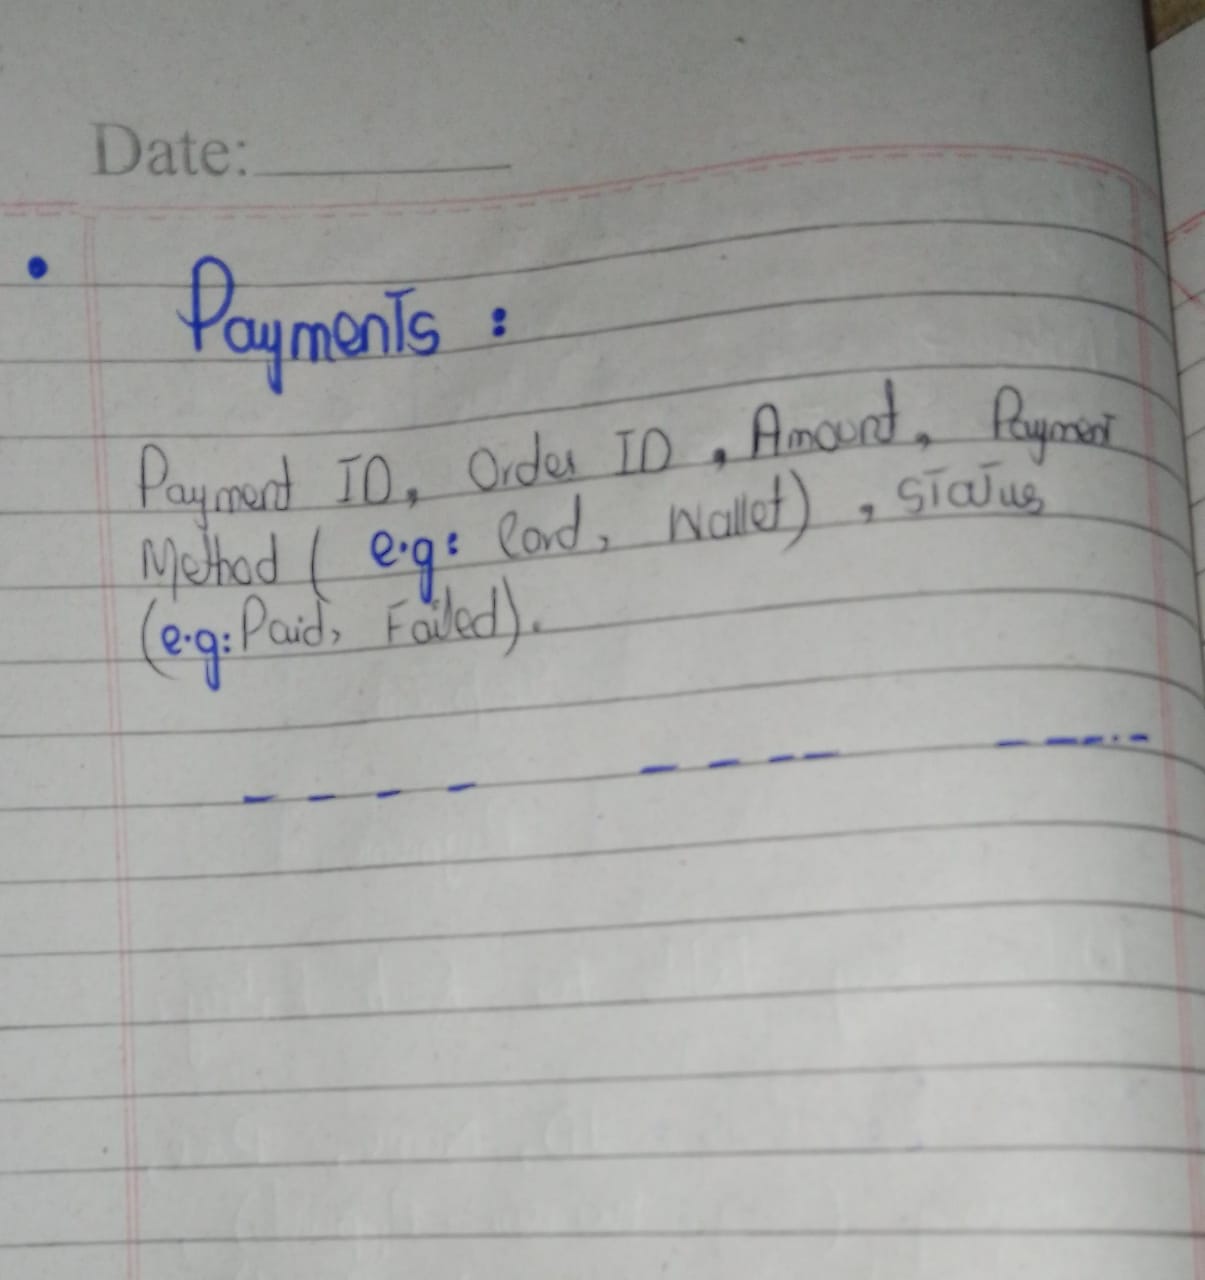 Date:
• Payments :
Payment ID, Order ID, Amount, Payment
Method ( e.g: Card, Wallet), Status
(e.g: Paid, Failed).